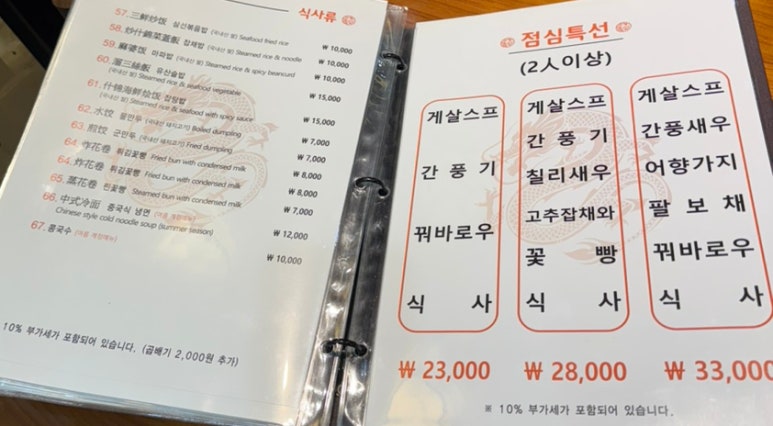 식사류
57. 三鮮炒饭 삼선볶음밥 (국내산 쌀) Seafood fried rice ₩ 10,000
58. 炒什錦菜蓋飯 잡채밥 (국내산 쌀) Steamed rice & noodle ₩ 10,000
59. 麻婆饭 마파밥 (국내산 쌀) Steamed rice & spicy beancurd ₩ 10,000
60. 溜三絲飯 유산슬밥
(국내산 쌀) Steamed rice & seafood vegetable ₩ 15,000
61. 什錦海鮮烩饭 잡탕밥
(국내산 쌀) Steamed rice & seafood with spicy sauce ₩ 15,000
62. 水饺 물만두 (국내산 돼지고기) Boiled dumpling ₩ 7,000
63. 煎饺 군만두 (국내산 돼지고기) Fried dumpling ₩ 7,000
64. 炸花卷 튀김꽃빵 Fried bun with condensed milk ₩ 8,000
64. 炸花卷 튀김꽃빵 Fried bun with condensed milk ₩ 8,000
65. 蒸花卷 찐꽃빵 Steamed bun with condensed milk ₩ 7,000
66. 中式冷面 중국식 냉면 (여름 계절메뉴)
Chinese style cold noodle soup (summer season) ₩ 12,000
67. 콩국수 (여름 계절메뉴) ₩ 10,000
10% 부가세가 포함되어 있습니다. (곱배기 2,000원 추가)
점심특선
(2人이상)
게살스프
간풍기
꿔바로우
식사
₩ 23,000
게살스프
간풍기
칠리새우
고추잡채와
꽃빵
식사
₩ 28,000
게살스프
간풍새우
어향가지
팔보채
꿔바로우
식사
₩ 33,000
※ 10% 부가세가 포함되어 있습니다.